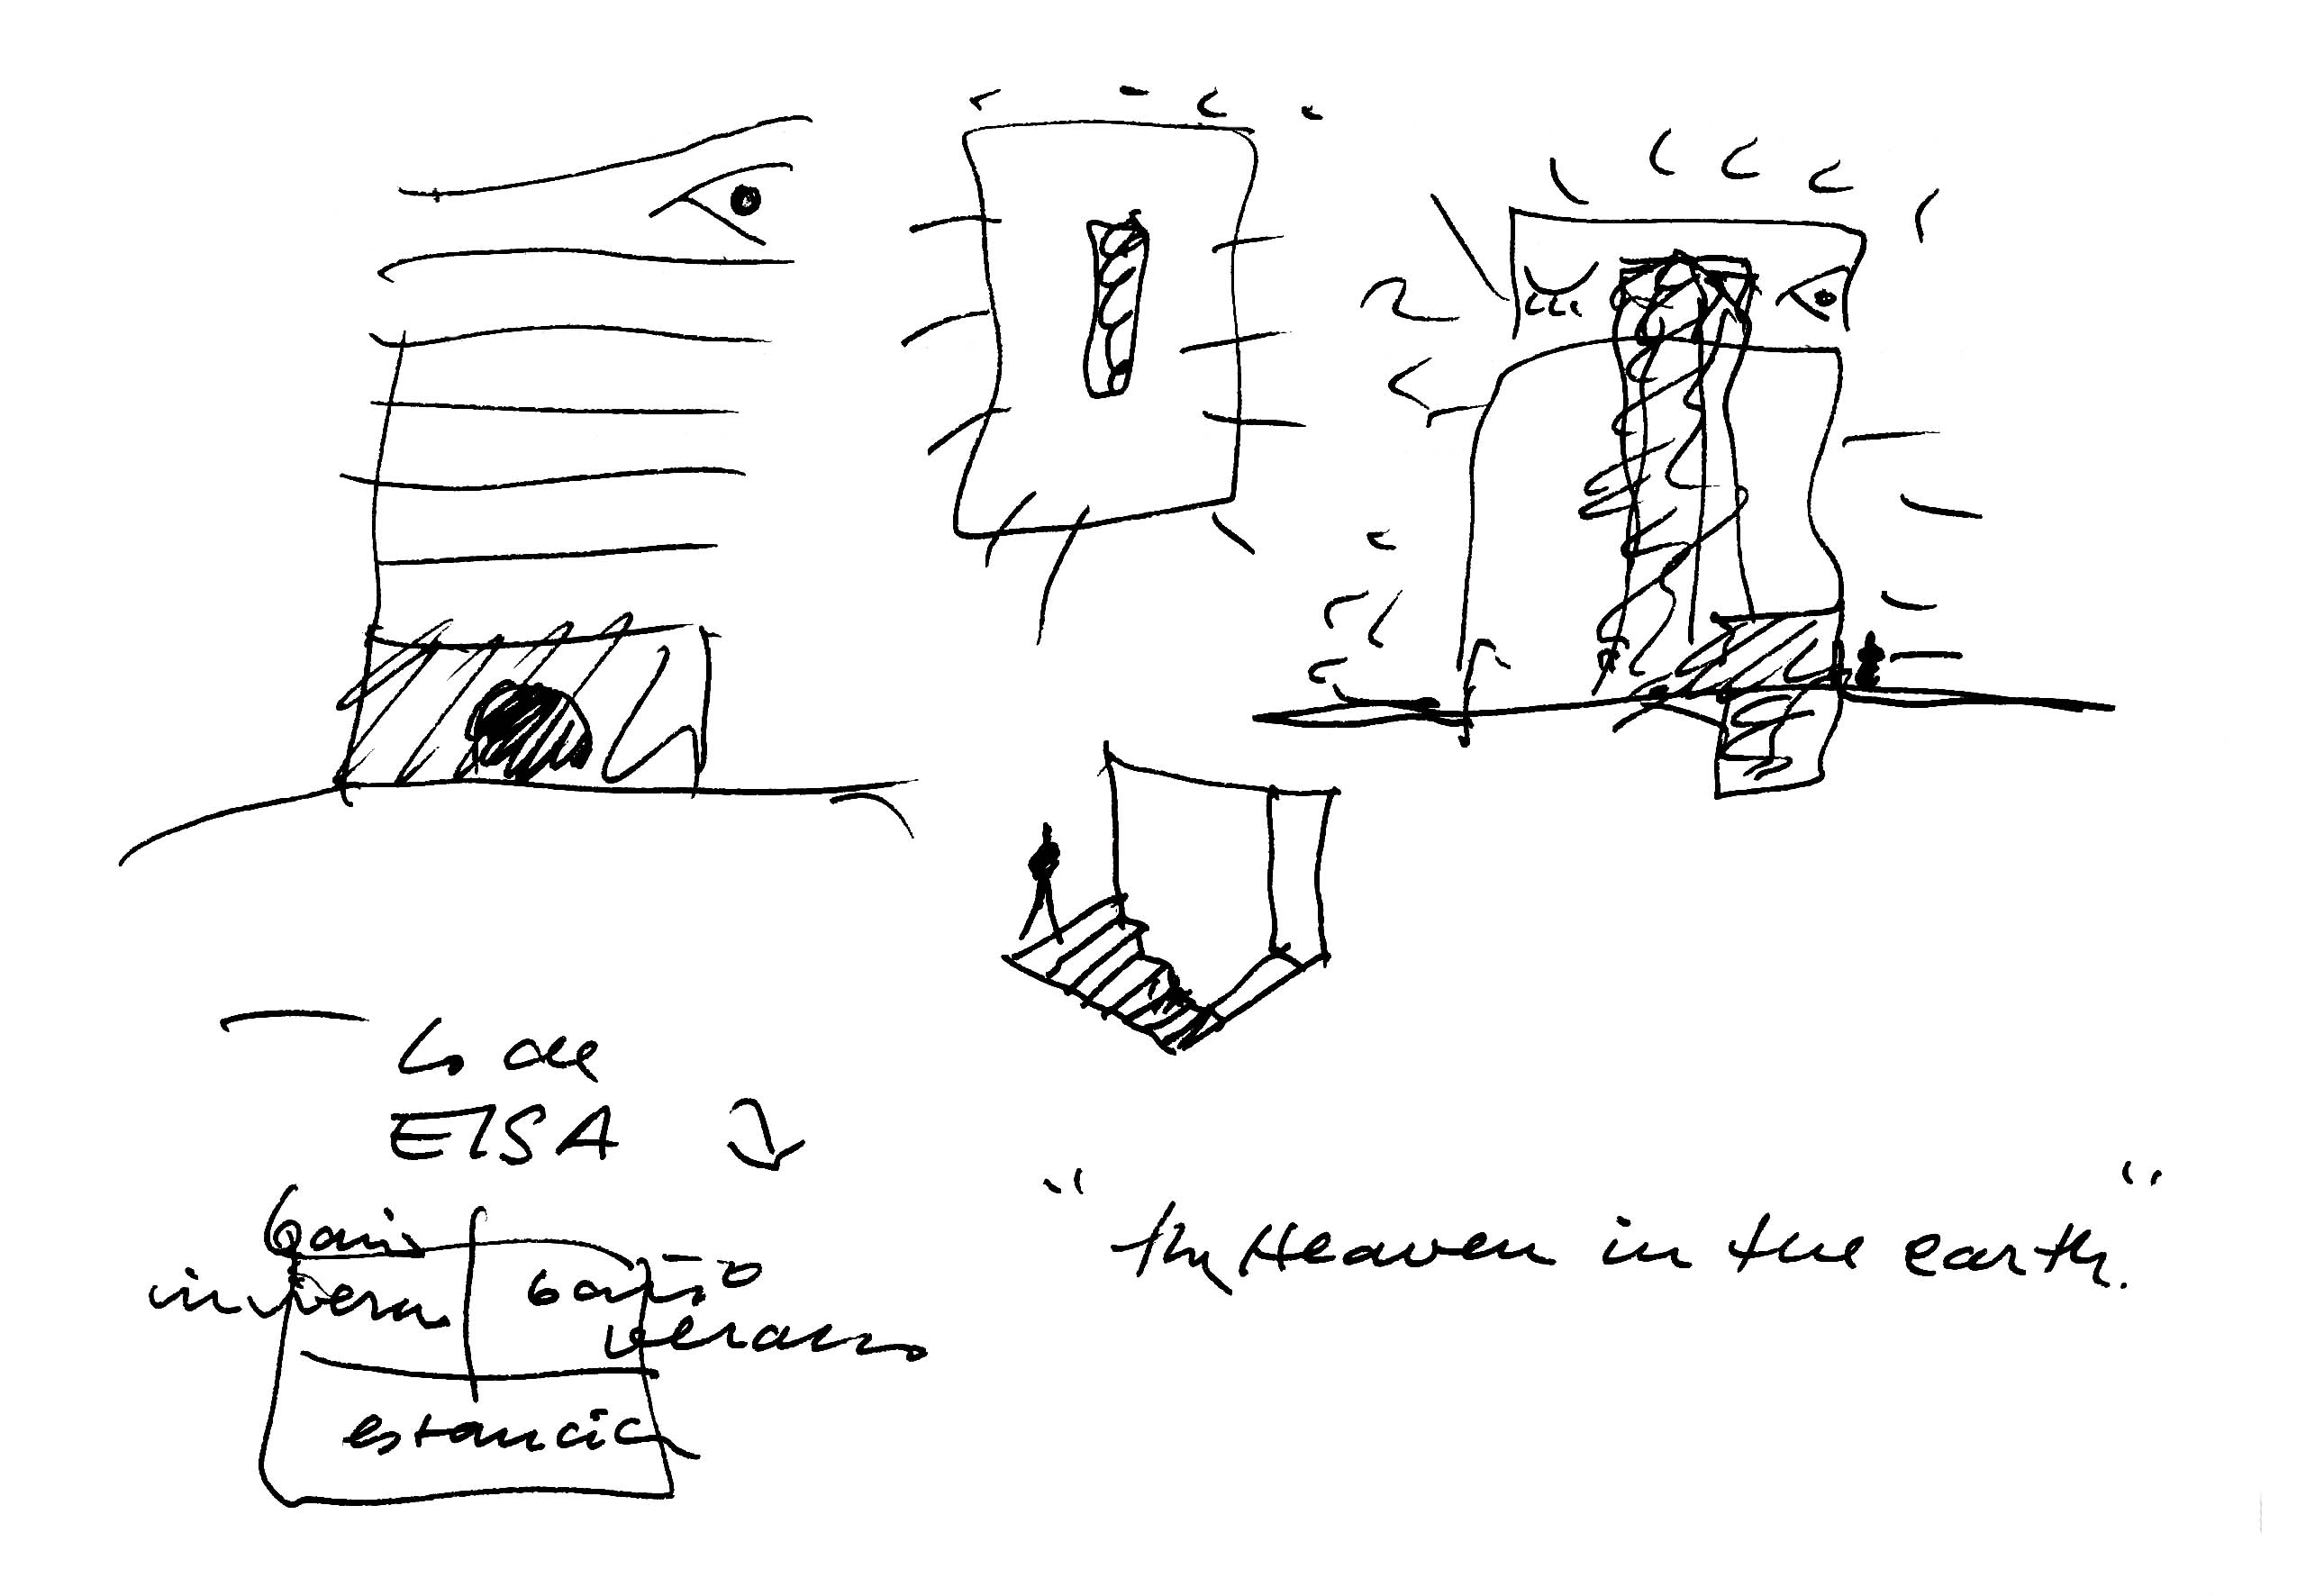 Lo de
ELSA
baño
invierno
baño
verano
estancia
"The Heaven in the earth."